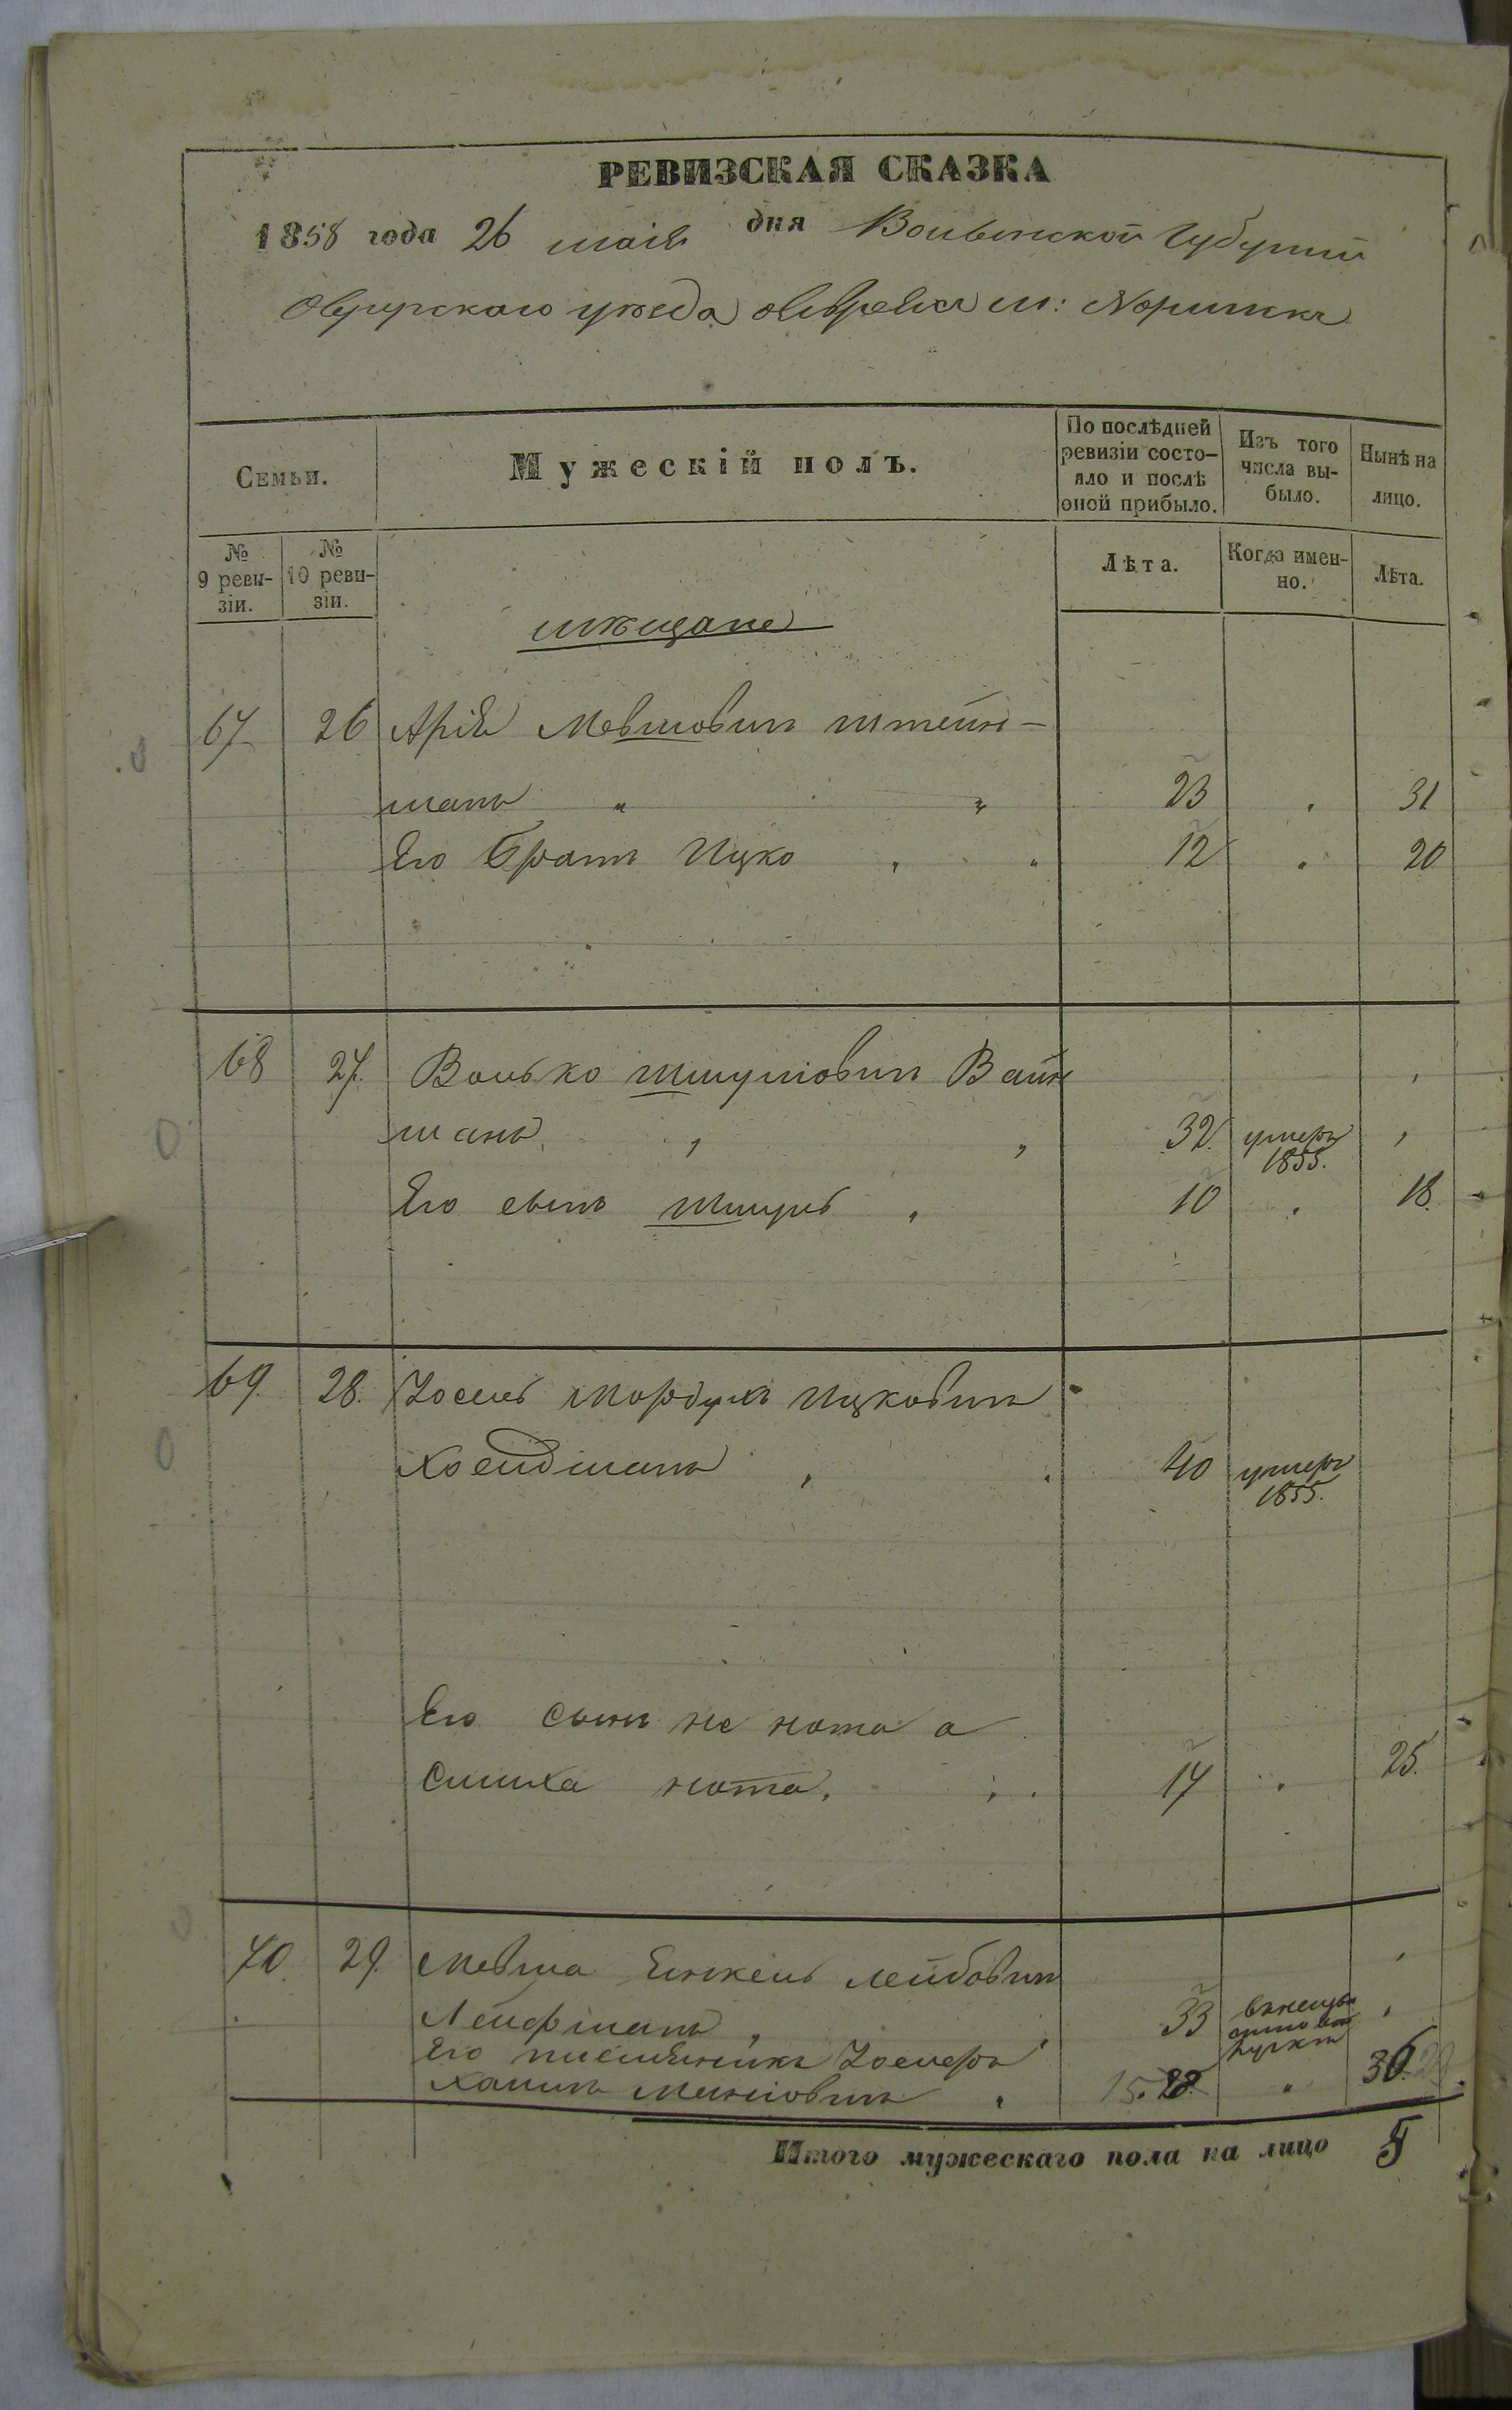 РЕВИЗСКАЯ СКАЗКА
1858 года 26 маія дня Волынской Губерніи
Овручскаго уѣзда евреевъ м: Норинска
Семьи.
Мужескій полъ.
По послѣдней ревизіи состо-яло и послѣ оной прибыло.
Изъ того числа вы-было.
Нынѣ на лицо.
№ 9 реви-зіи.
№ 10 реви-зіи.
Лѣта.
Когда имен-но.
Лѣта.
мѣщане
67 26 Арія Мевшовичъ Штейн-
манъ " " 23 31
Его братъ Ицко 12 20
68 27. Волько Шмулёвичъ Вайн
манъ 32 умеръ 1855.
Его сынъ Шмуль 10 18
69. 28. Іосель Мордухъ Ицковичъ
40 умеръ 1855.
Его сынъ не нота а
Симха нота. 17 25.
70. 29. Мевша Янкель Лейбовичъ
33
Его племянникъ
15. 28. " 36
Итого мужескаго пола на лицо 5